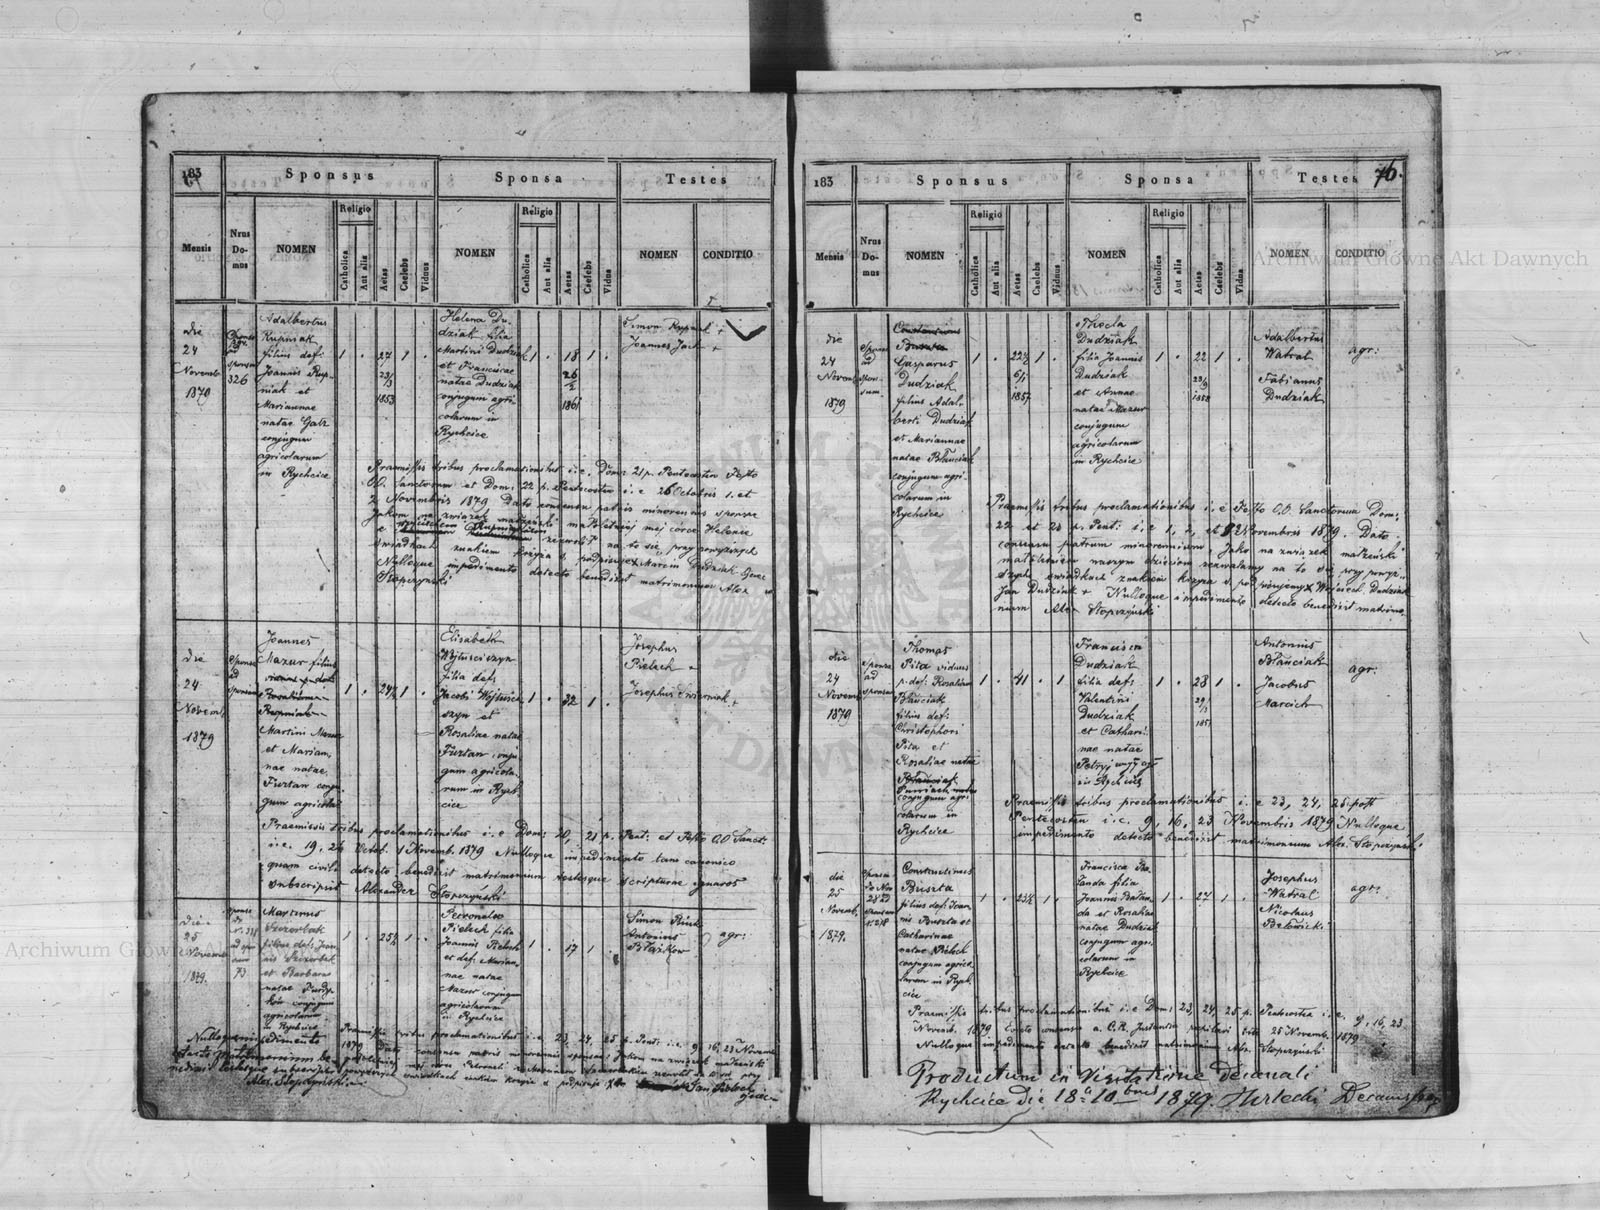 183
Sponsus
Sponsa
Testes
Mensis
Nrus Do-
mus
NOMEN
Religio
Catholica
Aut alia
Aetas
Caelebs
Viduus
NOMEN
Religio
Catholica
Aut alia
Aetas
Caelebs
Vidua
NOMEN
CONDITIO
die
24
Novemb
1879
sponsae
326
Adalbertus
Rupniak
filius def:
Joannis Rup-
niak et
Mariannae
natae Galz
conjugum
agricolarum
in Rychcice
1 . 27 1 .
23/3
1853
Helena Du-
dziak filia
Martini Dudziak
et Franciscae
natae Dudziak
conjugum agri-
colarum in
Rychcice
1 . 18 1 .
26/2
1861
Simon Rupniak +
Joannes Jach +
Praemissis tribus proclamationibus i.e. Dom: 21 p. Pentecosten Festo
O.O. Sanctorum et Dom: 22 p. Pentecosten i.e 26 Octobris 1. et
2 Novembris 1879 Dato consensu patris minorennis sponsae
Jakom na związek małżeński małoletniej mej córce Helenie
zezwolił na to się przy powyższych
świadkach znakiem krzyża s. podpisuję + Marcin Dudziak
Nulloque impedimento detecto benedixit matrimonium Alex
Stopczyński
die
24
Novemb
1879
Sponsae
ad
sponsam
Joannes
Mazur filius
Martini Mazur
et Marian-
nae natae
Furtan conju-
gum agricolar
1 . 24½ 1 .
Elisabeth
Wojtuściszyn
filia def:
Jacobi Wojtuści-
szyn et
Rosaliae natae
Furtan conju-
gum agricola-
rum in Rych-
cice
1 . 32 1 .
Josephus
Pielech +
Josephus Zwierniak +
Praemissis tribus proclamationibus i.e Dom: 20, 21 p. Pent: et Festo O.O Sanct:
i.e. 19. 26 Octob. 1 Novemb. 1879 Nulloque impedimento tam canonico
quam civili detecto benedixit matrimonium testesque scripturae ignaros
subscripsit Alexander Stopczyński
die
25
Novemb
1879.
Martinus
Szczerbak
filius def: Joan-
nis Szczerbak
et Barbara
natae
conjugum
agricolarum
in Rychcice
1 . 25½ 1 .
Petronela
Pielech filia
Joannis Pielech
et def: Marian-
nae natae
Mazur conjugum
agricolarum
in Rychcice
1 . 17 1 .
Simon
Antonius
Błażkow
agr:
Praemissis tribus proclamationibus i.e. 23, 24, 25 p. Pent: i.e. 9, 16, 23 Novemb
1879 Dato consensu patris minorennis sponsae: Jakom na związek małżeński
Nulloque impedimento
detecto matrimonium be-
nedixit testesque subscripsit
Alex. Stopczyński
Jan Pielech
76.
183
Sponsus
Sponsa
Testes
Mensis
Nrus
Do-
mus
NOMEN
Religio
Catholica
Aut alia
Aetas
Caelebs
Viduus
NOMEN
Religio
Catholica
Aut alia
Aetas
Caelebs
Vidua
NOMEN
CONDITIO
Archiwum Główne Akt Dawnych
die
24
Novemb
1879
Sponsae
ad
spon-
sum
Constantinus
Buszta
Gasparus
Dudziak
filius Adal-
berti Dudziak
et Mariannae
natae Błanciak
conjugum agri-
colarum in
Rychcice
1 . 22½ 1 .
6/1
1857
Thecla
Dudziak
filia Joannis
Dudziak
et Annae
natae Mazur
conjugum
agricolarum
in Rychcice
1 . 22 1 .
23/9
1858
Adalbertus
Watral
Fabianus
Dudziak
agr:
Praemissis tribus proclamationibus i. e Festo O.O. Sanctorum Dom:
22 et 23 p. Pent: i.e 1, 2, et 9 Novembris 1879. Dato
consensu patrum minorennium: Jako na związek małżeński
małoletnim naszym dzieciom zezwalamy na to się przy powyż-
szych świadkach znakiem krzyża s. podpisujemy + Wojciech Dudziak
Jan Dudziak + Nulloque impedimento detecto benedixit matrimo-
nium Alex Stopczyński
die
24
Novemb
1879
Sponsae
ad
sponsam
Thomas
Pita viduus
p. def: Rosaliam
Błanciak
filius def:
Christophori
Pita et
Rosaliae natae
Błanciak
conjugum agri-
colarum in
Rychcice
1 . 41 . 1
Francisca
Dudziak
filia def:
Valentini
Dudziak
et Cathari-
nae natae
in Rychcice
1 . 28 1 .
29/3
1851
Antonius
Błanciak
Jacobus
Marcich
agr:
Praemissis tribus proclamationibus i. e 23, 24, 25 post
Pentecosten i.e. 9, 16, 23 Novembris 1879 Nulloque
impedimento detecto benedixit matrimonium Alex. Stopczyński
die
25
Novemb.
1879.
Constantinus
Buszta
filius def: Joan-
nis Buszta et
Catharinae
natae Pielech
conjugum agrico-
larum in Rych-
cice
1 . 23½ 1 .
Francisca Ba-
landa filia
Joannis Balan-
da et Rosaliae
natae Dudziak
conjugum agri-
colarum in
Rychcice
1 . 27 1 .
Josephus
Watral
Nicolaus
agr:
Praemissis tribus proclamationibus i.e Dom: 23, 24, 25 p. Pentecosten i.e. 9, 16, 23.
Novemb. 1879 Dato consensu 25 Novemb. 1879
Nulloque impedimento detecto benedixit matrimonium Alex. Stopczyński
Productum in Visitatione Decanali
Rychcice die 18 a 10 bris 1879. Decanus
Archiwum Główne Akt